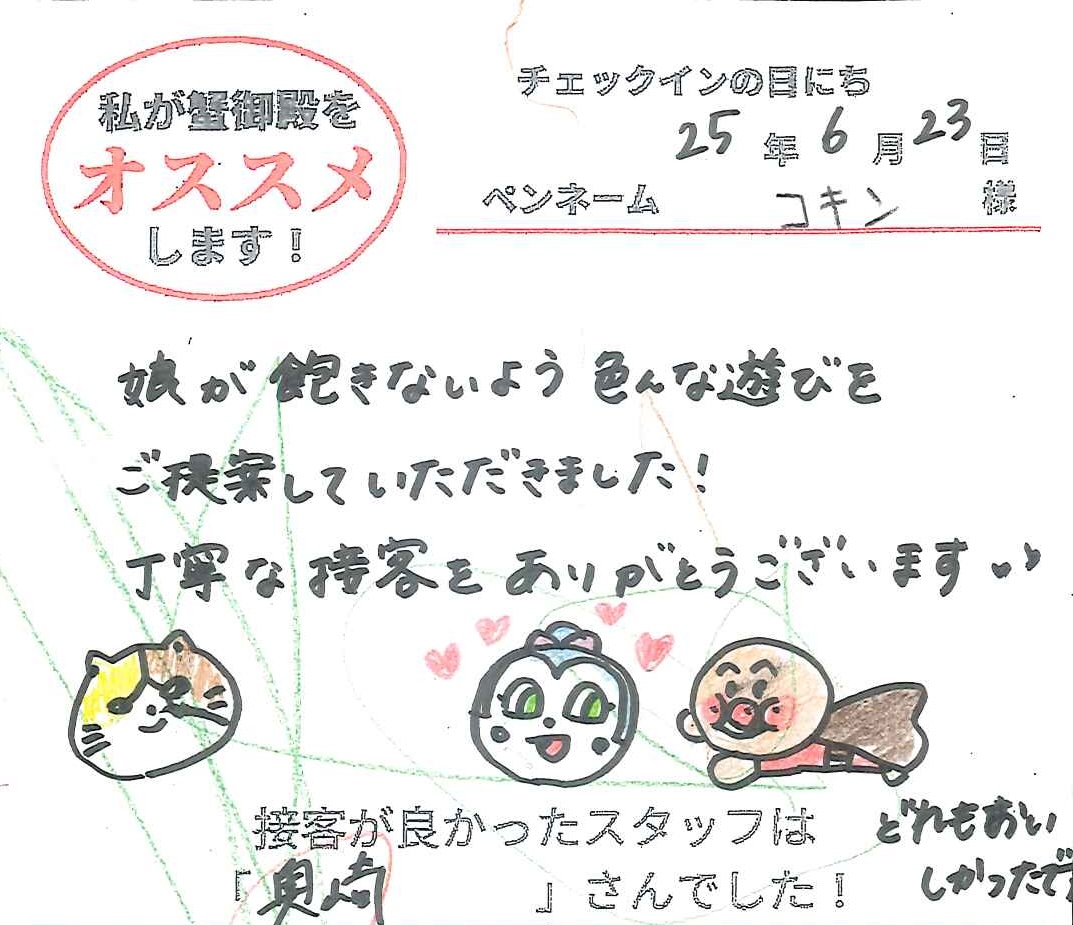 私が蟹御殿を
オススメ
します！
チェックインの日にち
25年6月23日
ペンネーム コキン 様
娘が飽きないよう色んな遊びを
ご提案していただきました！
丁寧な接客をありがとうございます
接客が良かったスタッフは
「奥崎」さんでした！
どれもおい
しかったです